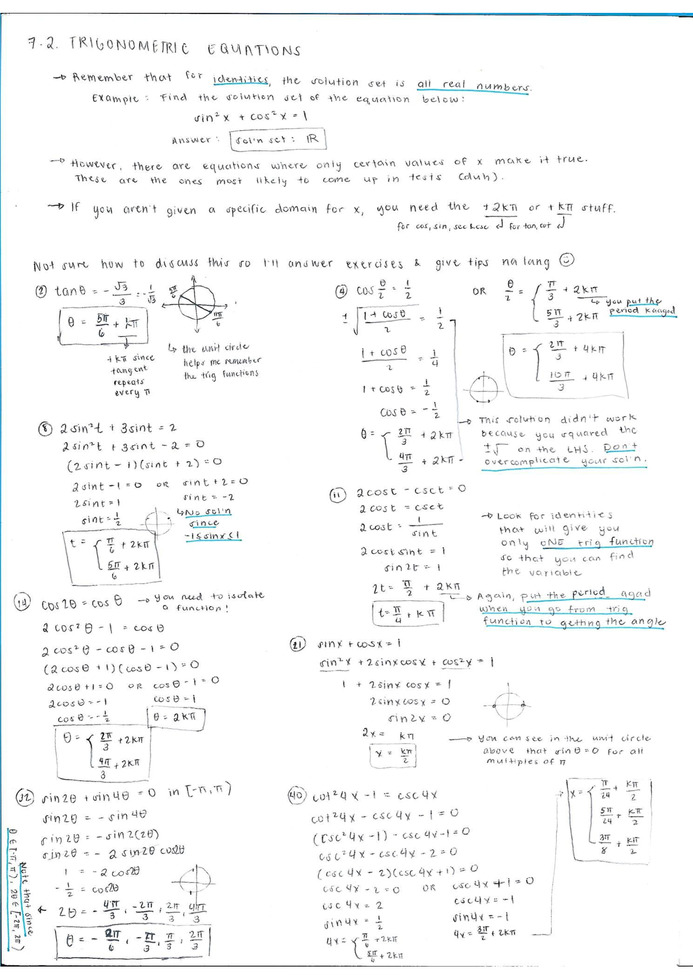 7.2. TRIGONOMETRIC EQUATIONS
→ Remember that for identities, the solution set is all real numbers.
Example: Find the solution set of the equation below:
sin²x + cos²x = 1
Answer: sol'n set: ℝ
→ However, there are equations where only certain values of x make it true.
These are the ones most likely to come up in tests (duh).
→ If you aren't given a specific domain for x, you need the +2kπ or +kπ stuff.
for cos, sin, sec & csc for tan, cot
Not sure how to discuss this so I'll answer exercises & give tips na lang
tanθ = -√3/3 = -1/√3
θ = 5π/6 + kπ
5π/6
11π/6
+kπ since
tangent
repeats
every π
↳ the unit circle
helps me remember
the trig functions
④ cos θ/2 = 1/2
±√((1 + cosθ)/2) = 1/2
(1 + cosθ)/2 = 1/4
1 + cosθ = 1/2
cosθ = -1/2
θ = { 2π/3 + 2kπ
4π/3 + 2kπ
OR θ/2 = { π/3 + 2kπ
5π/3 + 2kπ
↳ you put the
period kaagad
θ = { 2π/3 + 4kπ
10π/3 + 4kπ
→ This solution didn't work
because you squared the
±√ on the LHS. Don't
overcomplicate your sol'n.
⑧ 2sin²t + 3sint = 2
2sin²t + 3sint - 2 = 0
(2sint - 1)(sint + 2) = 0
2sint - 1 = 0 OR sint + 2 = 0
2sint = 1 sint = -2
sint = 1/2 ↳ No sol'n
since
-1≤sinx≤1
t = { π/6 + 2kπ
5π/6 + 2kπ
⑪ 2cost - csct = 0
2cost = csct
2cost = 1/sint
2costsint = 1
sin2t = 1
2t = π/2 + 2kπ
t = π/4 + kπ
→ Look for identities
that will give you
only ONE trig function
so that you can find
the variable
↳ Again, put the period agad
when you go from trig
function to getting the angle
cos2θ = cosθ → You need to isolate
a function!
2cos²θ - 1 = cosθ
2cos²θ - cosθ - 1 = 0
(2cosθ + 1)(cosθ - 1) = 0
2cosθ + 1 = 0 OR cosθ - 1 = 0
2cosθ = -1 cosθ = 1
cosθ = -1/2 θ = 2kπ
θ = { 2π/3 + 2kπ
4π/3 + 2kπ
㉑ sinx + cosx = 1
sin²x + 2sinxcosx + cos²x = 1
1 + 2sinxcosx = 1
2sinxcosx = 0
sin2x = 0
2x = kπ
x = kπ/2
→ You can see in the unit circle
above that sinθ = 0 for all
multiples of π
㉜ sin2θ + sin4θ = 0 in [-π, π)
sin2θ = -sin4θ
sin2θ = -sin2(2θ)
sin2θ = -2sin2θcos2θ
1 = -2cos2θ
-1/2 = cos2θ
2θ = -4π/3, -2π/3, 2π/3, 4π/3
θ = -2π/6, -2π/3, π/3, 2π/3
Note that since
θ∈[-π,π), 2θ∈[-2π,2π)
㊵ cot²4x - 1 = csc4x
cot²4x - csc4x - 1 = 0
(csc²4x - 1) - csc4x - 1 = 0
csc²4x - csc4x - 2 = 0
(csc4x - 2)(csc4x + 1) = 0
csc4x - 2 = 0 OR csc4x + 1 = 0
csc4x = 2 csc4x = -1
sin4x = 1/2 sin4x = -1
4x = { π/6 + 2kπ 4x = 3π/2 + 2kπ
5π/6 + 2kπ
x = { π/24 + kπ/2
5π/24 + kπ/2
3π/8 + kπ/2